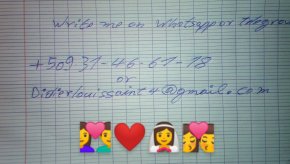 Write me on Whatsapp or telegram
+509 31-46-61-18
or
Didierlouissaint4@gmail.com